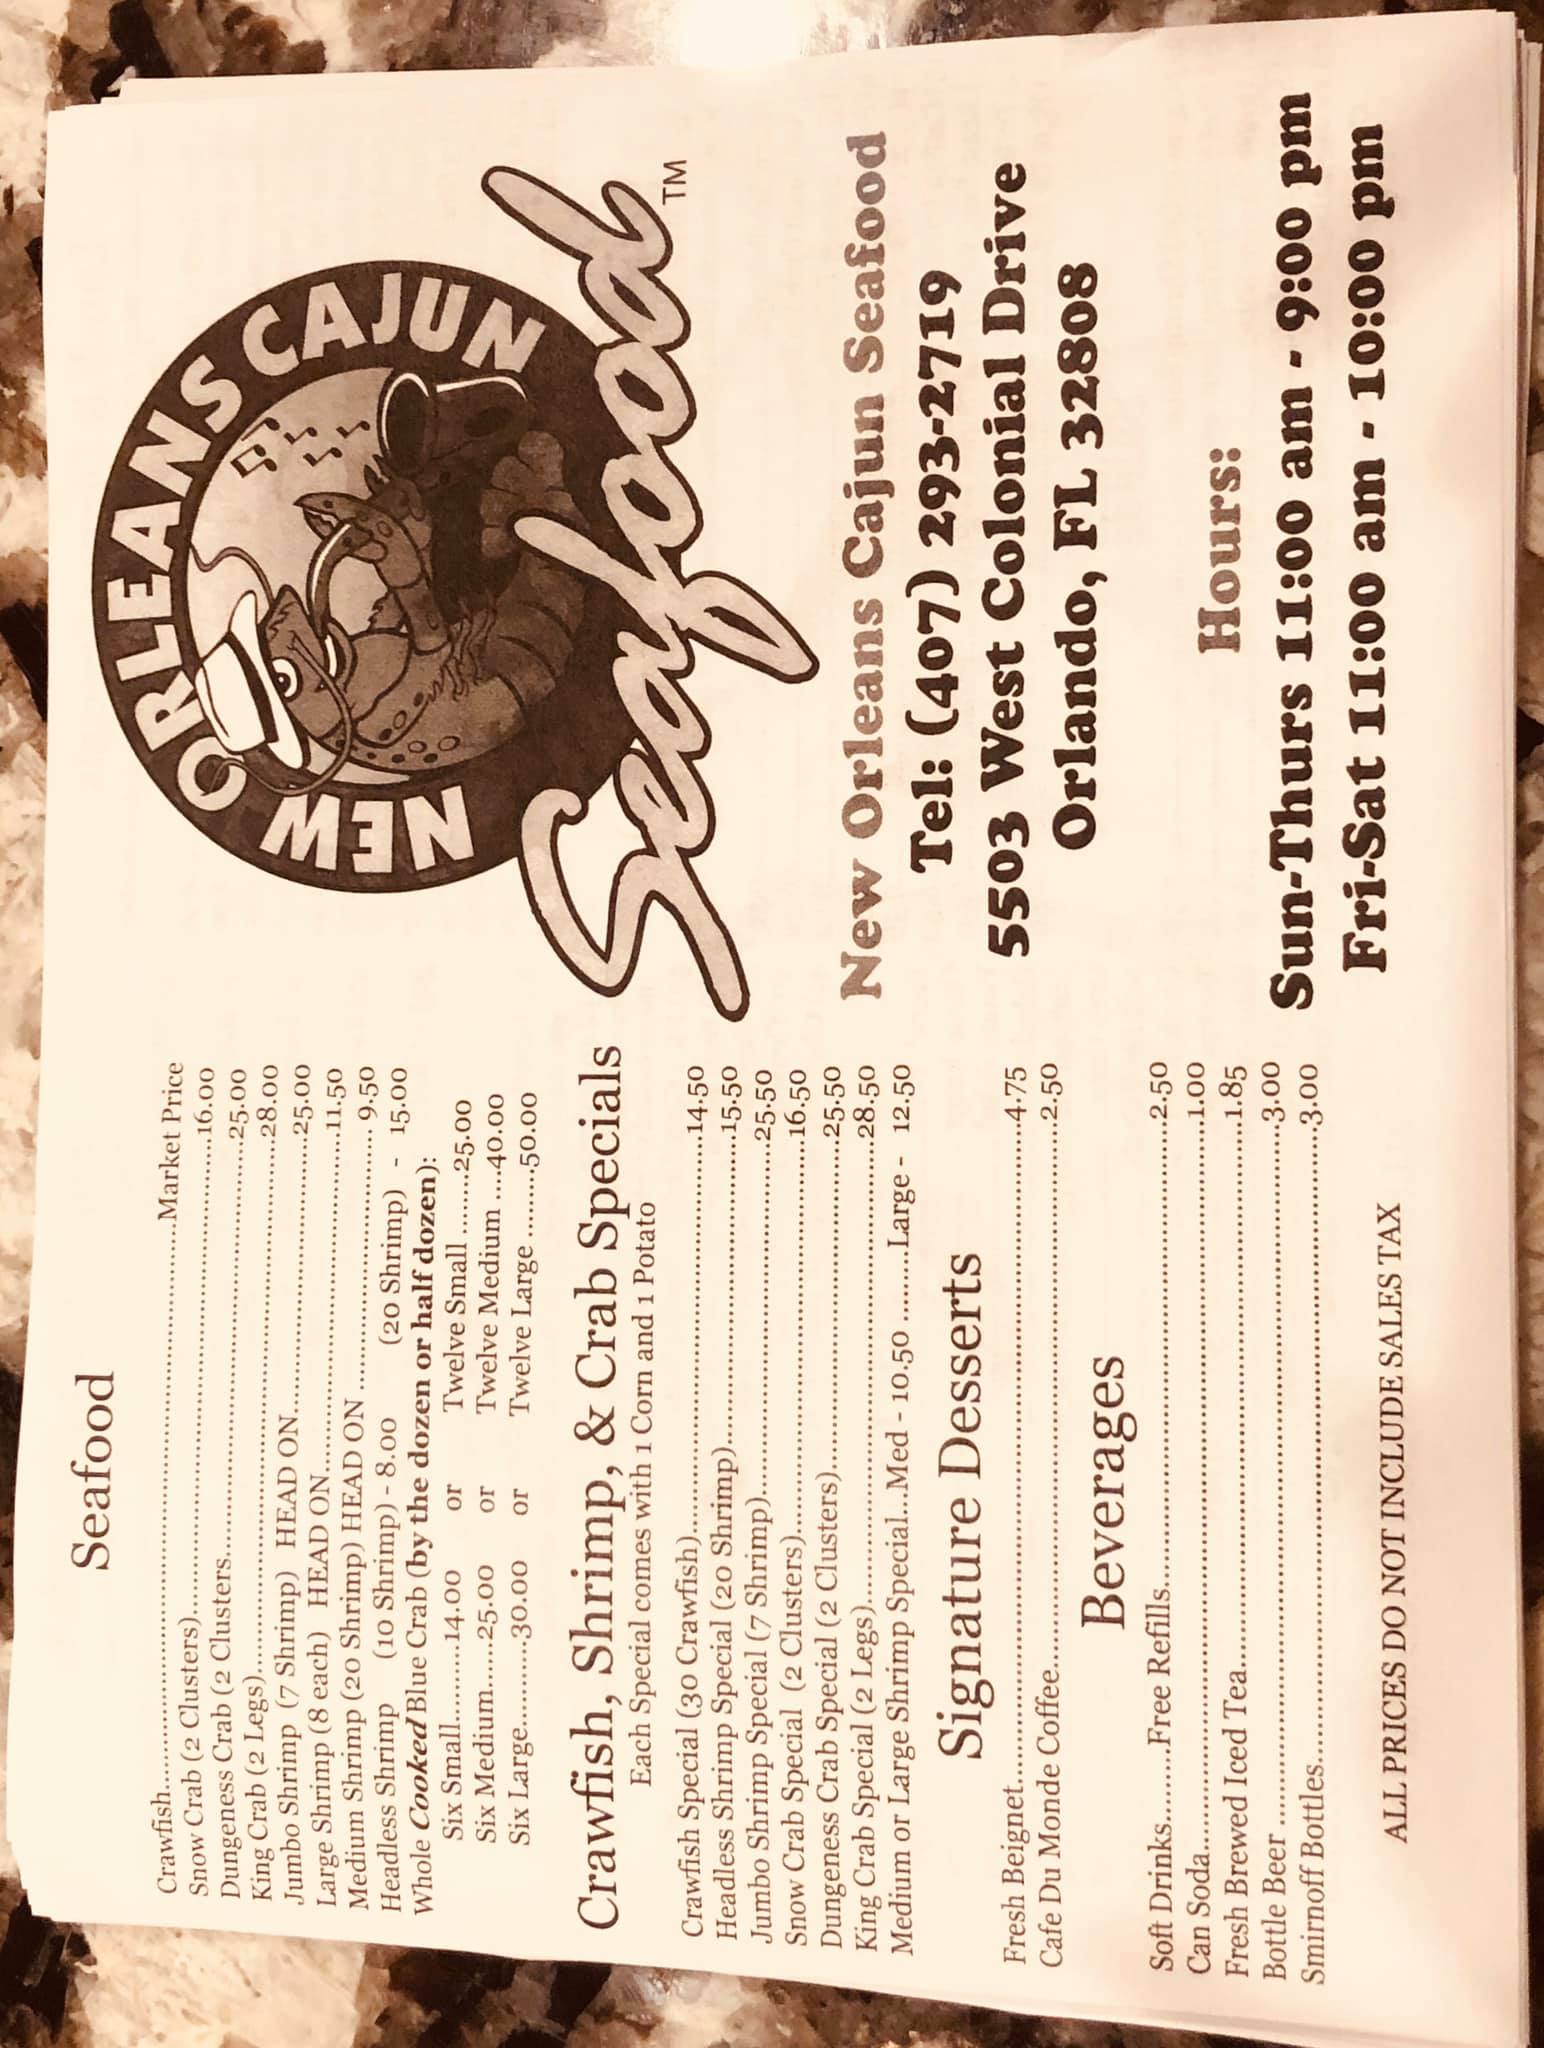 Seafood
Crawfish..........Market Price
Snow Crab (2 Clusters)..........16.00
Dungeness Crab (2 Clusters..........25.00
King Crab (2 Legs)..........28.00
Jumbo Shrimp (7 Shrimp) HEAD ON..........25.00
Large Shrimp (8 each) HEAD ON..........11.50
Medium Shrimp (20 Shrimp) HEAD ON .......... 9.50
Headless Shrimp (10 Shrimp) - 8.00 (20 Shrimp) - 15.00
Whole Cooked Blue Crab (by the dozen or half dozen):
Six Small.........14.00 or Twelve Small ........25.00
Six Medium.....25.00 or Twelve Medium ...40.00
Six Large.........30.00 or Twelve Large .........50.00
Crawfish, Shrimp, & Crab Specials
Each Special comes with 1 Corn and 1 Potato
Crawfish Special (30 Crawfish)..........14.50
Headless Shrimp Special (20 Shrimp)..........15.50
Jumbo Shrimp Special (7 Shrimp)..........25.50
Snow Crab Special (2 Clusters)..........16.50
Dungeness Crab Special (2 Clusters)..........25.50
King Crab Special (2 Legs)..........28.50
Medium or Large Shrimp Special..Med - 10.50 ........Large - 12.50
Signature Desserts
Fresh Beignet..........4.75
Cafe Du Monde Coffee..........2.50
Beverages
Soft Drinks........Free Refills..........2.50
Can Soda..........1.00
Fresh Brewed Iced Tea..........1.85
Bottle Beer ..........3.00
Smirnoff Bottles..........3.00
ALL PRICES DO NOT INCLUDE SALES TAX
NEW ORLEANS CAJUN
Seafood TM
New Orleans Cajun Seafood
Tel: (407) 293-2719
5503 West Colonial Drive
Orlando, FL 32808
Hours:
Sun-Thurs 11:00 am - 9:00 pm
Fri-Sat 11:00 am - 10:00 pm